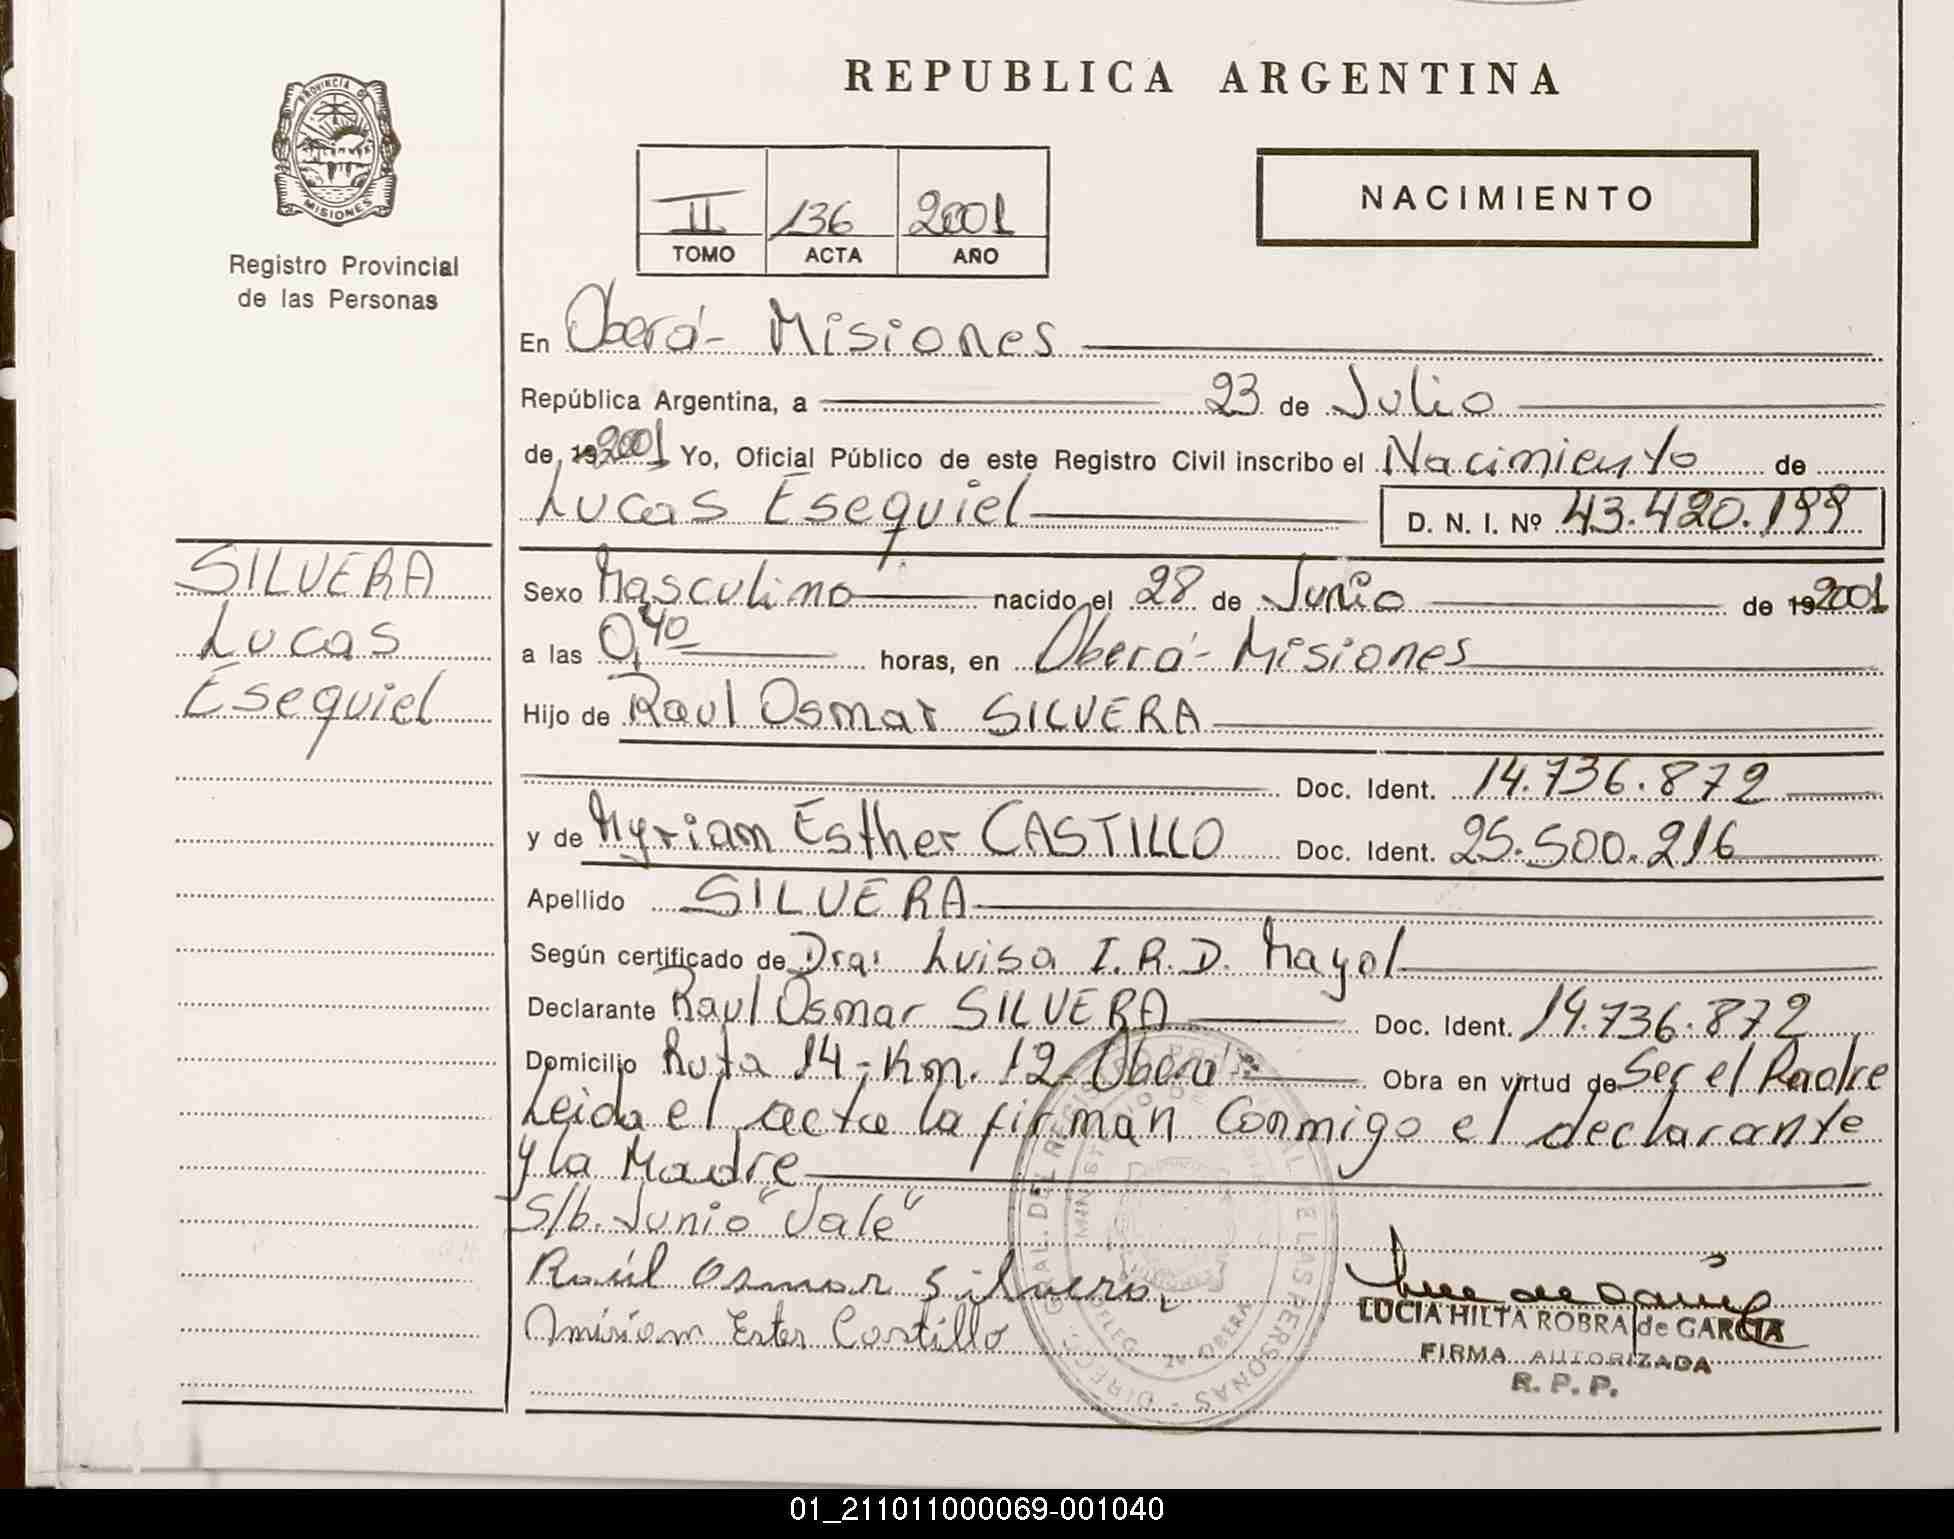 PROVINCIA DE
MISIONES
Registro Provincial
de las Personas
SILVERA
Lucas
Esequiel
REPUBLICA ARGENTINA
II 136 2001
TOMO ACTA AÑO
NACIMIENTO
En Oberá - Misiones
República Argentina, a 23 de Julio
de 192001 Yo, Oficial Público de este Registro Civil inscribo el Nacimiento de
Lucas Esequiel D. N. I. Nº 43.420.199
Sexo Masculino nacido el 28 de Junio de 192001
a las 0,40 horas, en Oberá - Misiones
Hijo de Raul Osmar SILVERA
Doc. Ident. 14.736.872
y de Myriam Esther CASTILLO Doc. Ident. 25.500.216
Apellido SILVERA
Según certificado de Dra: Luisa I.R.D. Mayol
Declarante Raul Osmar SILVERA Doc. Ident. 14.736.872
Domicilio Ruta 14 - Km. 12 Oberá Obra en virtud de Ser el Padre
Leida el acta la firman conmigo el declarante
y la Madre
S/b. Junio "Vale"
Raúl Osmar Silvera
Miriam Ester Castillo
LUCIA HILTA ROBRA de GARCIA
FIRMA AUTORIZADA
R. P. P.
01_211011000069-001040